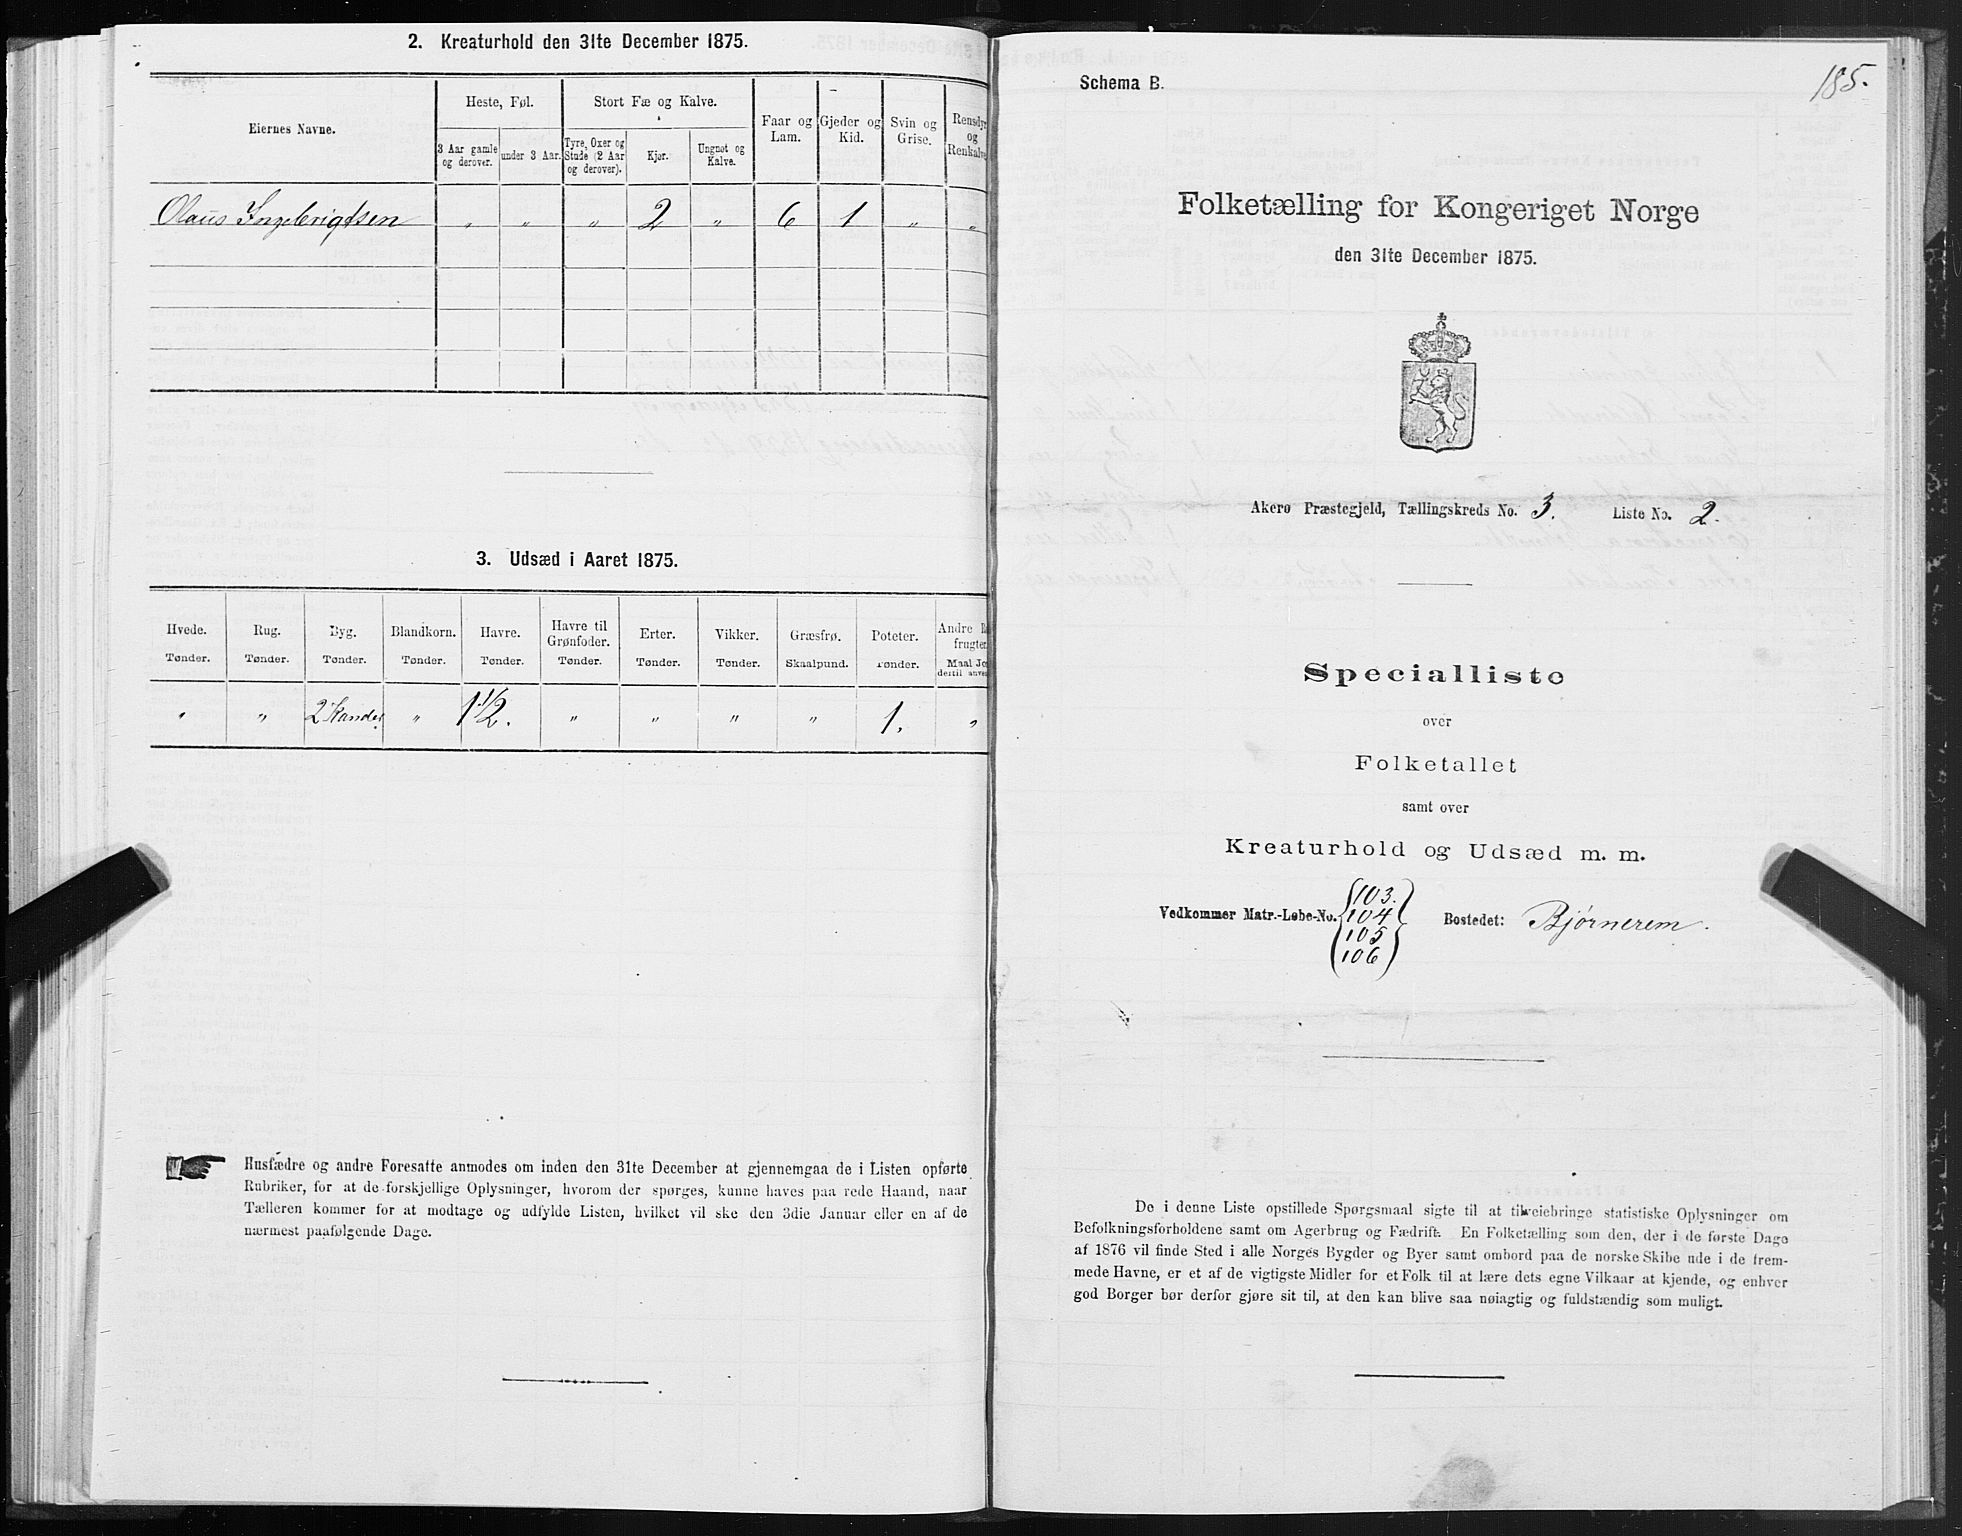 2. Kreaturhold den 31te December 1875.
Eiernes Navne.
Heste, Føl.
Stort Fæ og Kalve.
Faar og Lam.
Gjeder og Kid.
Svin og Grise.
Rensdyr og Renkalve
3 Aar gamle og derover.
under 3 Aar.
Tyre, Oxer og Stude (2 Aar og derover).
Kjør.
Ungnøt og Kalve.
Olaus Ingebrigtsen " " " 2 " 6 1 " "
3. Udsæd i Aaret 1875.
Hvede. Rug. Byg. Blandkorn. Havre. Havre til Grønfoder. Erter. Vikker. Græsfrø. Poteter. Andre frugter
Tønder. Tønder. Tønder. Tønder. Tønder. Tønder. Tønder. Tønder. Skaalpund. Tønder. Maal
" " 2 Kander " 1 1/2. " " " " 1. "
Husfædre og andre Foresatte anmodes om inden den 31te December at gjennemgaa de i Listen opførte
Rubriker, for at de forskjellige Oplysninger, hvorom der spørges, kunne haves paa rede Haand, naar
Tælleren kommer for at modtage og udfylde Listen, hvilket vil ske den 3die Januar eller en af de
nærmest paafølgende Dage.
185.
Schema B.
Folketælling for Kongeriget Norge
den 31te December 1875.
Akerø Præstegjeld, Tællingskreds No. 3. Liste No. 2.
Specialliste
over
Folketallet
samt over
Kreaturhold og Udsæd m. m.
Vedkommer Matr.-Løbe-No. 103. 104 105 106 Bostedet: Bjørnerem.
De i denne Liste opstillede Spørgsmaal sigte til at tilveiebringe statistiske Oplysninger om
Befolkningsforholdene samt om Agerbrug og Fædrift. En Folketælling som den, der i de første Dage
af 1876 vil finde Sted i alle Norges Bygder og Byer samt ombord paa de norske Skibe ude i de frem-
mede Havne, er et af de vigtigste Midler for et Folk til at lære dets egne Vilkaar at kjende, og enhver
god Borger bør derfor gjøre sit til, at den kan blive saa nøiagtig og fuldstændig som muligt.